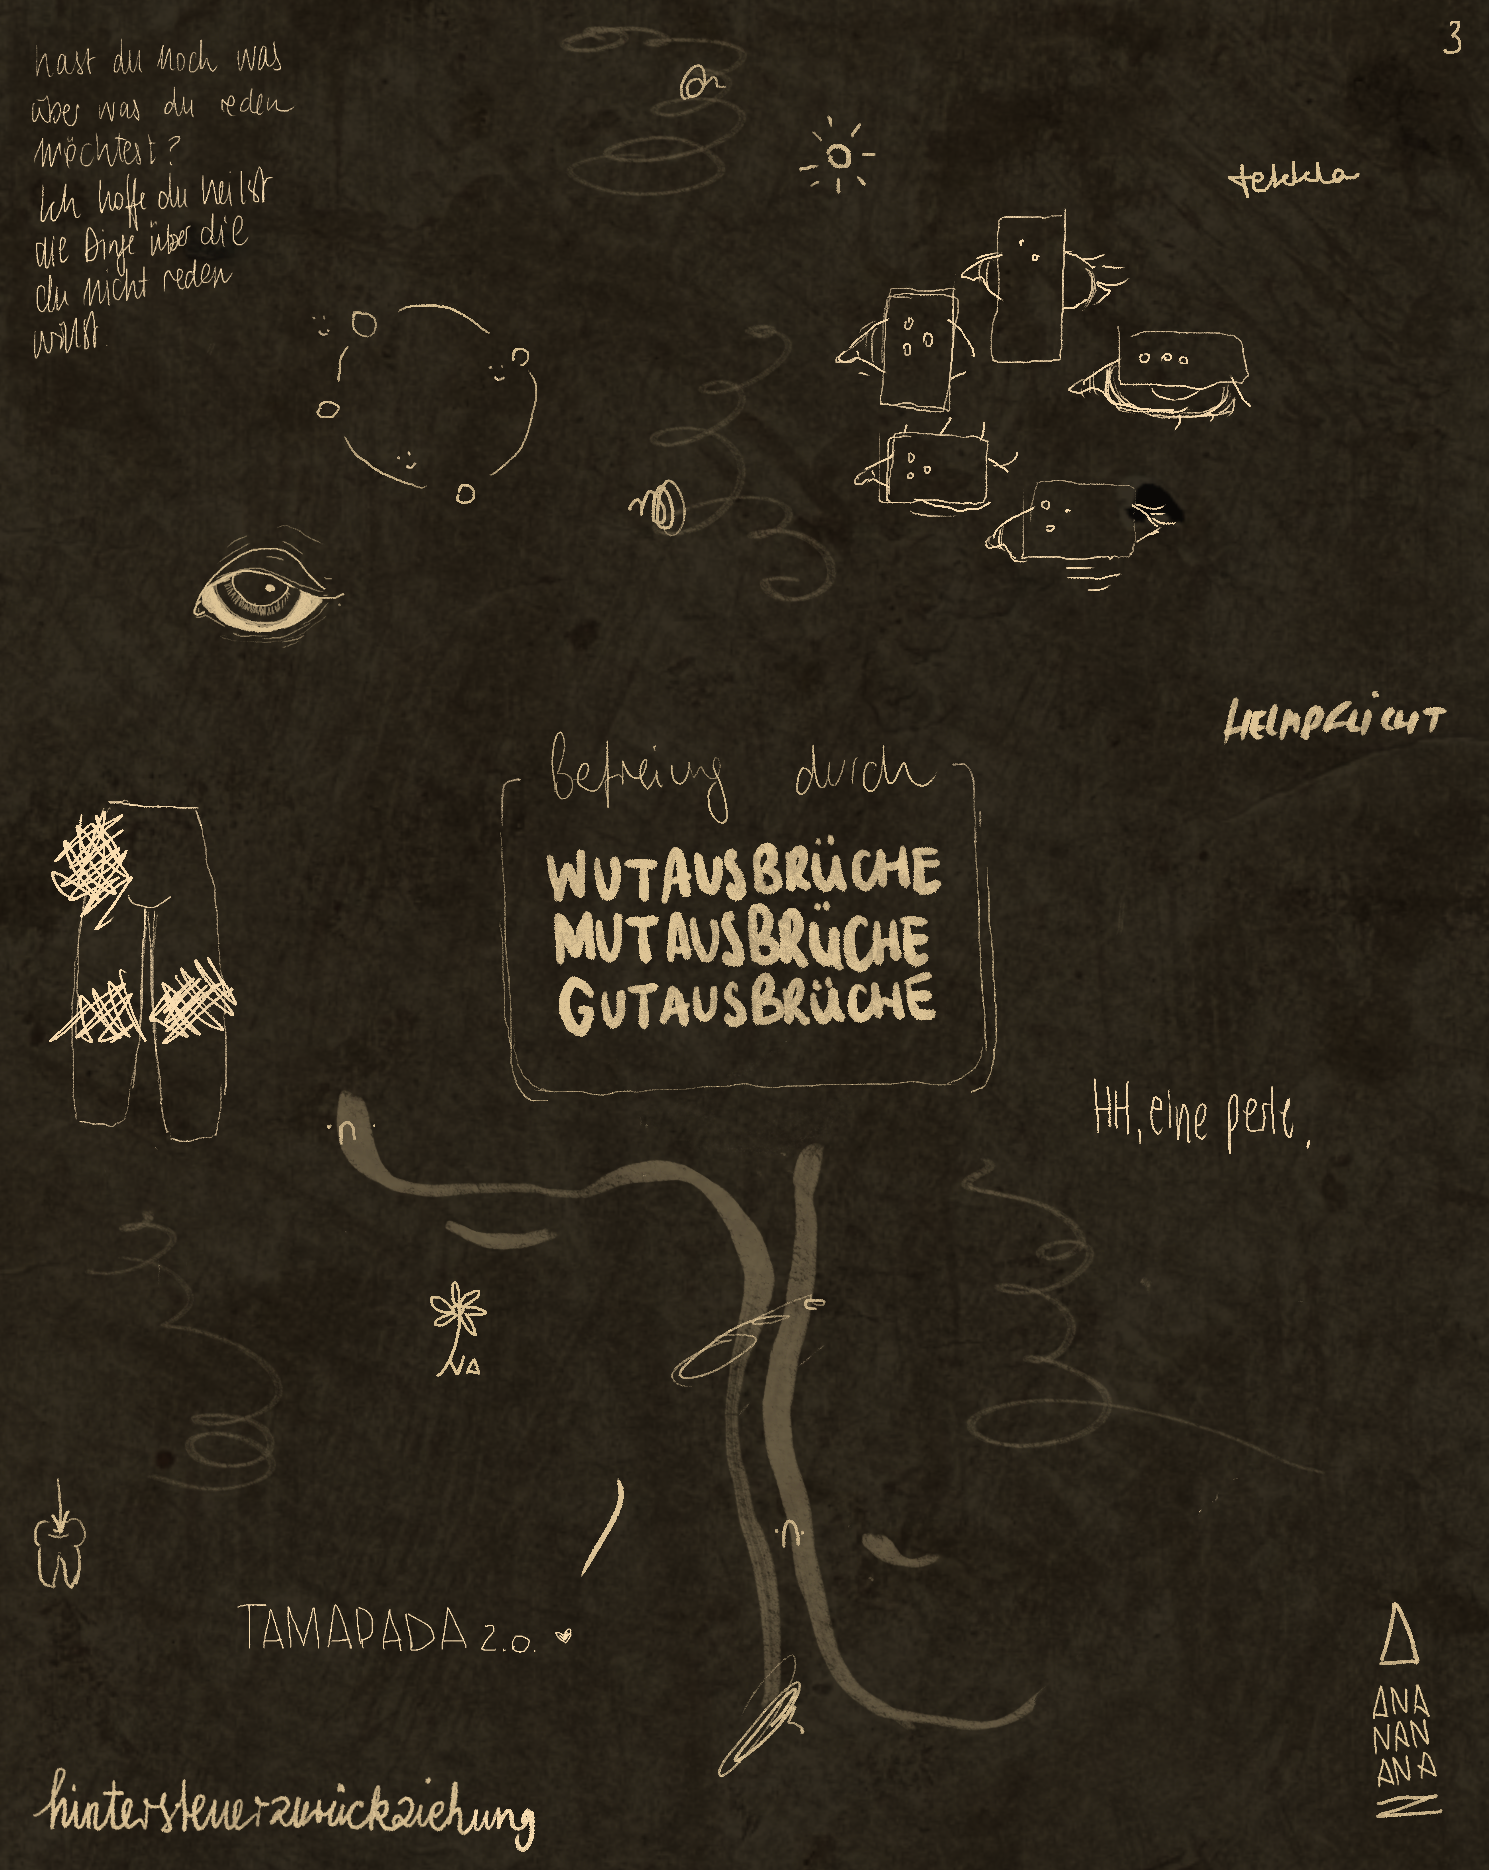 3
hast du noch was
über was du reden
möchtest?
Ich hoffe du heilst
die Dinge über die
du nicht reden
willst.
tekkla
HELMPFLICHT
Befreiung durch
WUTAUSBRÜCHE
MUTAUSBRÜCHE
GUTAUSBRÜCHE
HH, eine perle,
NA
TAMAPADA 2.0.
ANA
NAN
ANA
hintersteuerzurückziehung